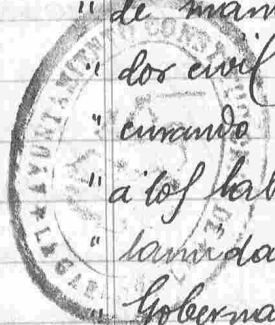 " de man
" dor civil
" curando
" a los lab
" lamida
" Goberna
AYUNTAMIENTO CONST
DE
LA GAR